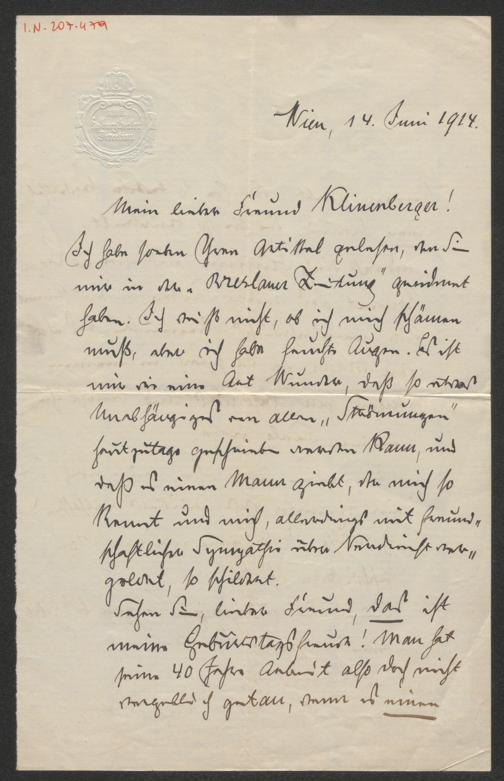 I.N. 207.479
Wien, 14. Juni 1914.
Mein lieber Freund Klinenberger!
Ich habe soeben Ihren Artikel gelesen, den Sie
mir in der „Breslauer Zeitung" gewidmet
haben. Ich weiß nicht, ob ich mich schämen
muß, aber ich habe feuchte Augen. Es ist
mir wie eine Art Wunder, daß so etwas
Unabhängiges von allen „Strömungen"
heutzutage geschrieben werden kann, und
daß es einen Mann giebt, der mich so
kennt und mich, allerdings mit freund-
schaftlicher Sympathie über Verdienst ver-
goldet, so schildert.
Sehen Sie, lieber Freund, das ist
meine Geburtstagsfreude! Man hat
seine 40 Jahre Arbeit also doch nicht
vergeblich getan, wenn es einen